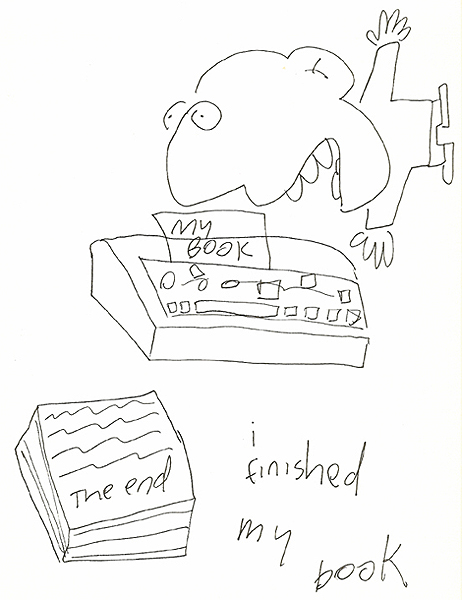 my
BOOK
The end
i
finished
my
book